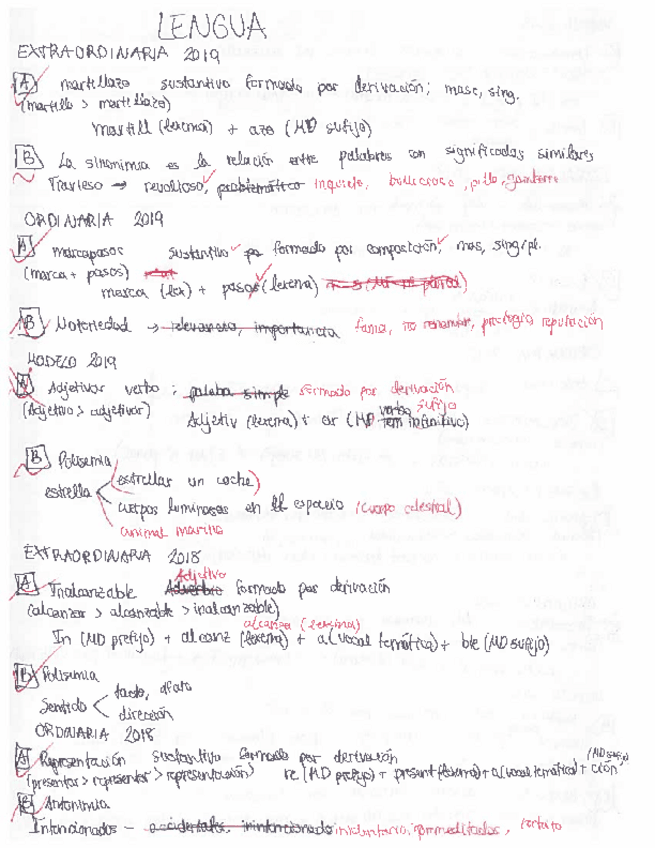 LENGUA
EXTRAORDINARIA 2019
A martillazo sustantivo formado por derivación; masc, sing.
(martillo > martillazo)
martill (lexema) + azo (MD sufijo)
B La sinonimia es la relación entre palabras con significados similares
Travieso → revoltoso, problemático inquieto, bullicioso, pillo, gamberro
ORDINARIA 2019
A marcapasos sustantivo formado por composición, mas, sing/pl.
(marca + pasos)
marca (lex) + pasos (lexema)
B Notoriedad → relevancia, importancia fama, renombre, prestigio reputación
MODELO 2019
A Adjetivar verbo; palabra simple formado por derivación
(Adjetivo > adjetivar) Adjetiv (lexema) + ar (MD verbo sufijo infinitivo)
B Polisemia
estrella
(estrellar un coche)
cuerpos luminosos en el espacio (cuerpo celestial)
animal marino
EXTRAORDINARIA 2018
A Inalcanzable Adverbio Adjetivo formado por derivación
(alcanzar > alcanzable > inalcanzable)
alcanza (lexema)
In (MD prefijo) + alcanz (lexema) + a (vocal temática) + ble (MD sufijo)
B Polisemia
Sentido
tacto, olfato
dirección
ORDINARIA 2018
A Representación sustantivo formado por derivación
(presentar > representar > representación) re (MD prefijo) + present (lexema) + a (vocal temática) + ción (MD sufijo)
B Antonimia
Intencionados – accidentales, inintencionado involuntario, fortuito